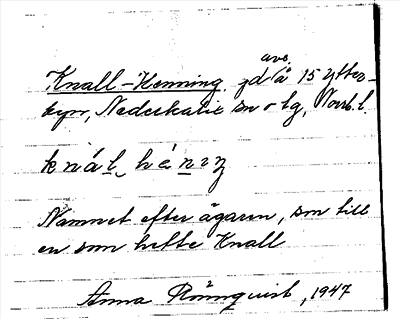 avs.
Knall-Henning, jd å 15 Ytter-
byn, Nederkalix sn o lg, Norrb. l.
knál hénıŋ
Namnet efter ägaren, son till
en som hette Knall
Anna Rönnquist, 1947